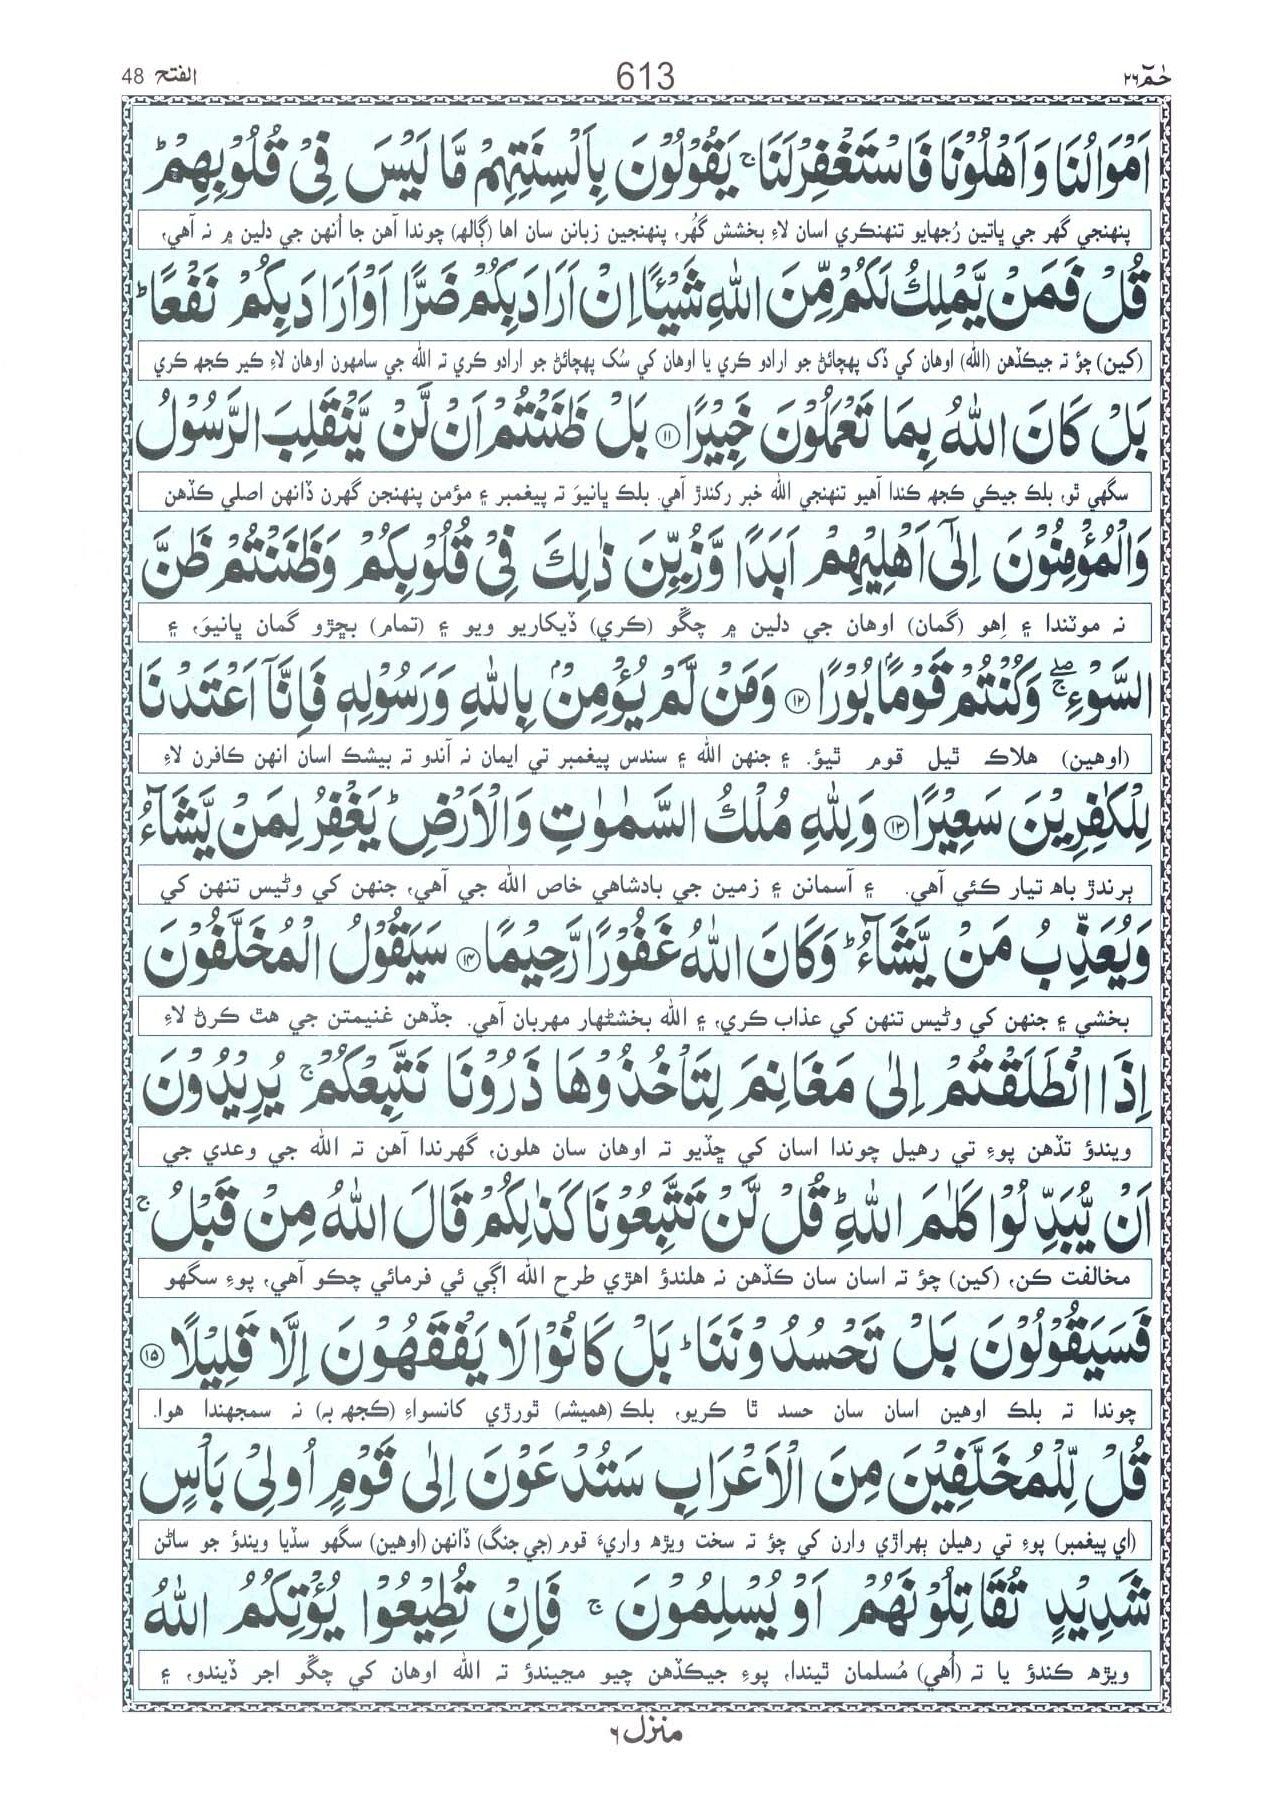 حٰمٓ ٢٦
613
الفتح 48
اَمْوَالُنَا وَاَهْلُوْنَا فَاسْتَغْفِرْ لَنَا ۚ يَقُوْلُوْنَ بِاَلْسِنَتِهِمْ مَّا لَيْسَ فِيْ قُلُوْبِهِمْ ؕ
پنهنجي گهر جي ڀاتين رُجهايو تنهنڪري اسان لاءِ بخشش گهُر، پنهنجين زبانن سان اها (ڳالهه) چوندا آهن جا اُنهن جي دلين ۾ نہ آهي،
قُلْ فَمَنْ يَّمْلِكُ لَكُمْ مِّنَ اللّٰهِ شَيْـًٔا اِنْ اَرَادَ بِكُمْ ضَرًّا اَوْ اَرَادَ بِكُمْ نَفْعًا ؕ
(کين) چؤ تہ جيڪڏهن (الله) اوهان کي ڏک پهچائڻ جو ارادو ڪري يا اوهان کي سُک پهچائڻ جو ارادو ڪري تہ الله جي سامهون اوهان لاءِ ڪير ڪجهہ ڪري
بَلْ كَانَ اللّٰهُ بِمَا تَعْمَلُوْنَ خَبِيْرًا ۝١١ بَلْ ظَنَنْتُمْ اَنْ لَّنْ يَّنْقَلِبَ الرَّسُوْلُ
سگهي ٿو، بلڪ جيڪي ڪجهہ ڪندا آهيو تنهنجي الله خبر رکندڙ آهي. بلڪ ڀانيوَ تہ پيغمبر ۽ مؤمن پنهنجن گهرن ڏانهن اصلي ڪڏهن
وَالْمُؤْمِنُوْنَ اِلٰٓى اَهْلِيْهِمْ اَبَدًا وَّزُيِّنَ ذٰلِكَ فِيْ قُلُوْبِكُمْ وَظَنَنْتُمْ ظَنَّ
نہ موٽندا ۽ اِهو (گمان) اوهان جي دلين ۾ چڱو (ڪري) ڏيکاريو ويو ۽ (تمام) بڇڙو گمان ڀانيوَ، ۽
السَّوْءِ ۚۖ وَكُنْتُمْ قَوْمًا بُوْرًا ۝١٢ وَمَنْ لَّمْ يُؤْمِنْۢ بِاللّٰهِ وَرَسُوْلِهٖ فَاِنَّآ اَعْتَدْنَا
(اوهين) هلاڪ ٿيل قوم ٿيؤ. ۽ جنهن الله ۽ سندس پيغمبر تي ايمان نہ آندو تہ بيشڪ اسان انهن ڪافرن لاءِ
لِلْكٰفِرِيْنَ سَعِيْرًا ۝١٣ وَلِلّٰهِ مُلْكُ السَّمٰوٰتِ وَالْاَرْضِ ؕ يَغْفِرُ لِمَنْ يَّشَآءُ
ٻرندڙ باهہ تيار ڪئي آهي. ۽ آسمانن ۽ زمين جي بادشاهي خاص الله جي آهي، جنهن کي وڻيس تنهن کي
وَيُعَذِّبُ مَنْ يَّشَآءُ ؕ وَكَانَ اللّٰهُ غَفُوْرًا رَّحِيْمًا ۝١٤ سَيَقُوْلُ الْمُخَلَّفُوْنَ
بخشي ۽ جنهن کي وڻيس تنهن کي عذاب ڪري، ۽ الله بخشڻهار مهربان آهي. جڏهن غنيمتن جي هٿ ڪرڻ لاءِ
اِذَا انْطَلَقْتُمْ اِلٰى مَغَانِمَ لِتَاْخُذُوْهَا ذَرُوْنَا نَتَّبِعْكُمْ ۚ يُرِيْدُوْنَ
ويندؤ تڏهن پوءِ تي رهيل چوندا اسان کي ڇڏيو تہ اوهان سان هلون، گهرندا آهن تہ الله جي وعدي جي
اَنْ يُّبَدِّلُوْا كَلٰمَ اللّٰهِ ؕ قُلْ لَّنْ تَتَّبِعُوْنَا كَذٰلِكُمْ قَالَ اللّٰهُ مِنْ قَبْلُ ۚ
مخالفت ڪن، (کين) چؤ تہ اسان سان ڪڏهن نہ هلندؤ اهڙي طرح الله اڳي ئي فرمائي چڪو آهي، پوءِ سگهو
فَسَيَقُوْلُوْنَ بَلْ تَحْسُدُوْنَنَا ؕ بَلْ كَانُوْا لَا يَفْقَهُوْنَ اِلَّا قَلِيْلًا ۝١٥
چوندا تہ بلڪ اوهين اسان سان حسد ٿا ڪريو، بلڪ (هميشہ) ٿورڙي کانسواءِ (ڪجهہ بہ) نہ سمجهندا هوا.
قُلْ لِّلْمُخَلَّفِيْنَ مِنَ الْاَعْرَابِ سَتُدْعَوْنَ اِلٰى قَوْمٍ اُولِيْ بَاْسٍ
(اي پيغمبر) پوءِ تي رهيلن ٻهراڙي وارن کي چؤ تہ سخت ويڙهہ واريءَ قوم (جي جنگ) ڏانهن (اوهين) سگهو سڏيا ويندؤ جو ساڻن
شَدِيْدٍ تُقَاتِلُوْنَهُمْ اَوْ يُسْلِمُوْنَ ۚ فَاِنْ تُطِيْعُوْا يُؤْتِكُمُ اللّٰهُ
ويڙهہ ڪندؤ يا تہ (اُهي) مُسلمان ٿيندا، پوءِ جيڪڏهن چيو مڃيندؤ تہ الله اوهان کي چڱو اجر ڏيندو، ۽
منزل ٦